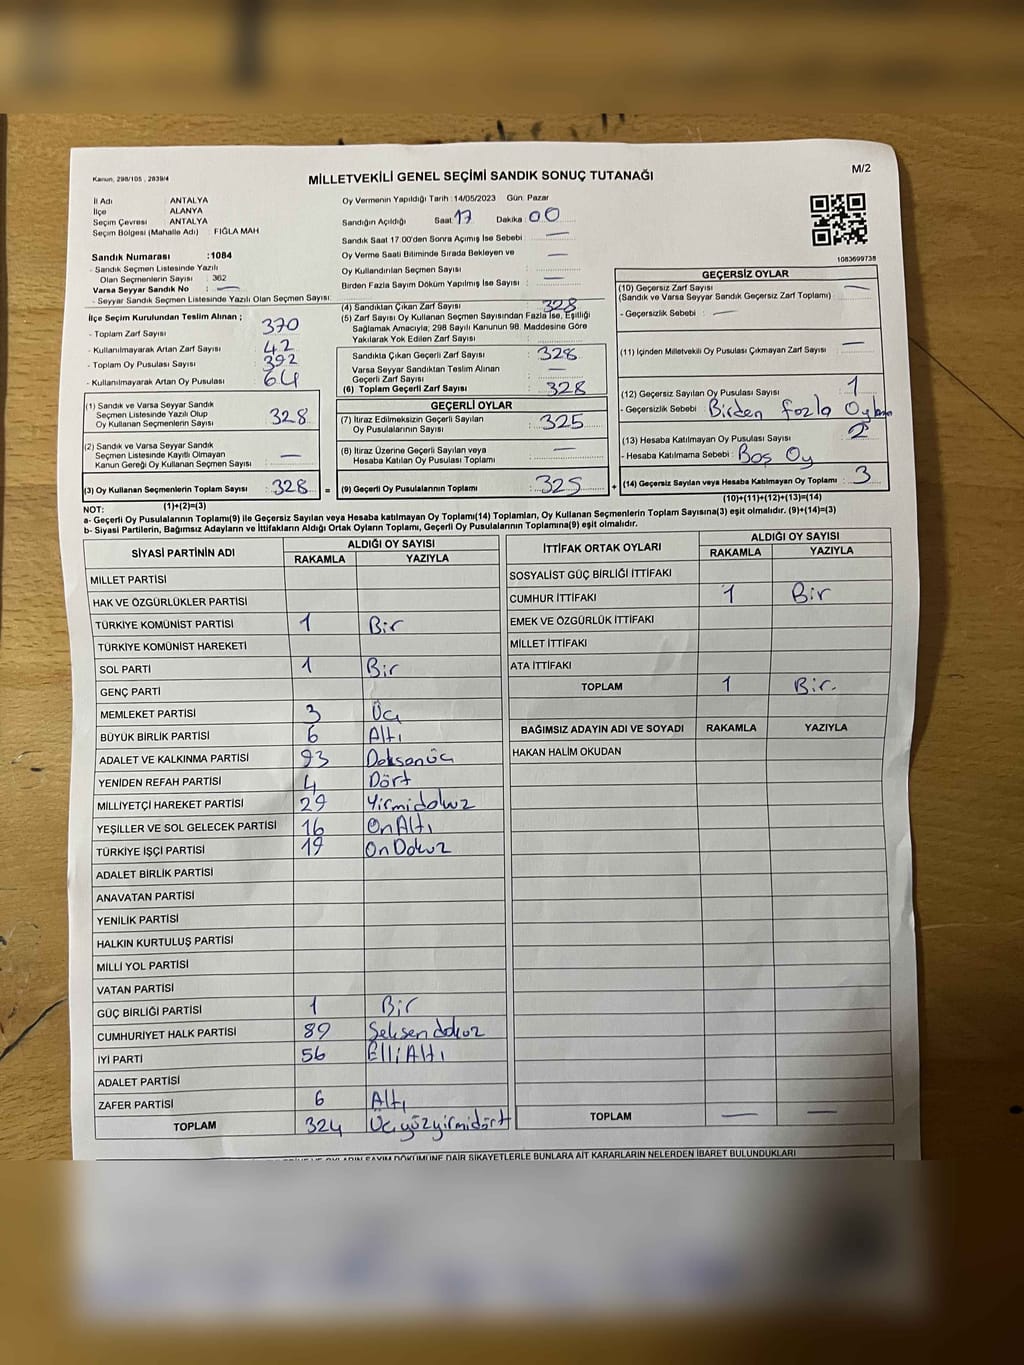 Kanun, 298/105 , 2839/4
MİLLETVEKİLİ GENEL SEÇİMİ SANDIK SONUÇ TUTANAĞI
M/2
İl Adı : ANTALYA
İlçe : ALANYA
Seçim Çevresi : ANTALYA
Seçim Bölgesi (Mahalle Adı) : FIĞLA MAH
Sandık Numarası :1084
- Sandık Seçmen Listesinde Yazılı
Olan Seçmenlerin Sayısı : 362
Varsa Seyyar Sandık No : —
- Seyyar Sandık Seçmen Listesinde Yazılı Olan Seçmen Sayısı:
Oy Vermenin Yapıldığı Tarih :14/05/2023 Gün: Pazar
Sandığın Açıldığı Saat 17 Dakika 00
Sandık Saat 17.00'den Sonra Açımış İse Sebebi : —
Oy Verme Saati Bitiminde Sırada Bekleyen ve
Oy Kullandırılan Seçmen Sayısı : —
Birden Fazla Sayım Döküm Yapılmış İse Sayısı : —
1083699738
İlçe Seçim Kurulundan Teslim Alınan ;
- Toplam Zarf Sayısı : 370
- Kullanılmayarak Artan Zarf Sayısı : 42
- Toplam Oy Pusulası Sayısı : 392
- Kullanılmayarak Artan Oy Pusulası : 64
(1) Sandık ve Varsa Seyyar Sandık
Seçmen Listesinde Yazılı Olup
Oy Kullanan Seçmenlerin Sayısı : 328
(2) Sandık ve Varsa Seyyar Sandık
Seçmen Listesinde Kayıtlı Olmayan
Kanun Gereği Oy Kullanan Seçmen Sayısı : —
(3) Oy Kullanan Seçmenlerin Toplam Sayısı : 328
(1)+(2)=(3)
(4) Sandıktan Çıkan Zarf Sayısı : 328
(5) Zarf Sayısı Oy Kullanan Seçmen Sayısından Fazla İse, Eşitliği
Sağlamak Amacıyla; 298 Sayılı Kanunun 98. Maddesine Göre
Yakılarak Yok Edilen Zarf Sayısı :
Sandıkta Çıkan Geçerli Zarf Sayısı : 328
Varsa Seyyar Sandıktan Teslim Alınan
Geçerli Zarf Sayısı : —
(6) Toplam Geçerli Zarf Sayısı : 328
GEÇERLİ OYLAR
(7) İtiraz Edilmeksizin Geçerli Sayılan
Oy Pusulalarının Sayısı : 325
(8) İtiraz Üzerine Geçerli Sayılan veya
Hesaba Katılan Oy Pusulası Toplamı : —
= (9) Geçerli Oy Pusulalarının Toplamı : 325
GEÇERSİZ OYLAR
(10) Geçersiz Zarf Sayısı : —
(Sandık ve Varsa Seyyar Sandık Geçersiz Zarf Toplamı)
- Geçersizlik Sebebi : —
(11) İçinden Milletvekili Oy Pusulası Çıkmayan Zarf Sayısı : —
(12) Geçersiz Sayılan Oy Pusulası Sayısı : 1
- Geçersizlik Sebebi : Birden fazla
(13) Hesaba Katılmayan Oy Pusulası Sayısı : 2
- Hesaba Katılmama Sebebi : Boş Oy
+ (14) Geçersiz Sayılan veya Hesaba Katılmayan Oy Toplamı : 3
(10)+(11)+(12)+(13)=(14)
NOT:
a- Geçerli Oy Pusulalarının Toplamı(9) ile Geçersiz Sayılan veya Hesaba katılmayan Oy Toplamı(14) Toplamları, Oy Kullanan Seçmenlerin Toplam Sayısına(3) eşit olmalıdır. (9)+(14)=(3)
b- Siyasi Partilerin, Bağımsız Adayların ve İttifakların Aldığı Ortak Oyların Toplamı, Geçerli Oy Pusulalarının Toplamına(9) eşit olmalıdır.
SİYASİ PARTİNİN ADI ALDIĞI OY SAYISI
RAKAMLA YAZIYLA
MİLLET PARTİSİ
HAK VE ÖZGÜRLÜKLER PARTİSİ
TÜRKİYE KOMÜNİST PARTİSİ 1 Bir
TÜRKİYE KOMÜNİST HAREKETİ
SOL PARTİ 1 Bir
GENÇ PARTİ
MEMLEKET PARTİSİ 3 Üç
BÜYÜK BİRLİK PARTİSİ 6 Altı
ADALET VE KALKINMA PARTİSİ 93 Doksanüç
YENİDEN REFAH PARTİSİ 4 Dört
MİLLİYETÇİ HAREKET PARTİSİ 29 Yirmidokuz
YEŞİLLER VE SOL GELECEK PARTİSİ 16 OnAltı
TÜRKİYE İŞÇİ PARTİSİ 19 OnDokuz
ADALET BİRLİK PARTİSİ
ANAVATAN PARTİSİ
YENİLİK PARTİSİ
HALKIN KURTULUŞ PARTİSİ
MİLLİ YOL PARTİSİ
VATAN PARTİSİ
GÜÇ BİRLİĞİ PARTİSİ 1 Bir
CUMHURİYET HALK PARTİSİ 89 Seksendokuz
İYİ PARTİ 56 ElliAltı
ADALET PARTİSİ
ZAFER PARTİSİ 6 Altı
TOPLAM 324 Üçyüzyirmidört
İTTİFAK ORTAK OYLARI ALDIĞI OY SAYISI
RAKAMLA YAZIYLA
SOSYALİST GÜÇ BİRLİĞİ İTTİFAKI
CUMHUR İTTİFAKI 1 Bir
EMEK VE ÖZGÜRLÜK İTTİFAKI
MİLLET İTTİFAKI
ATA İTTİFAKI
TOPLAM 1 Bir.
BAĞIMSIZ ADAYIN ADI VE SOYADI RAKAMLA YAZIYLA
HAKAN HALİM OKUDAN
TOPLAM — —
SAYIM DÖKÜMÜNE DAİR ŞİKAYETLERLE BUNLARA AİT KARARLARIN NELERDEN İBARET BULUNDUKLARI